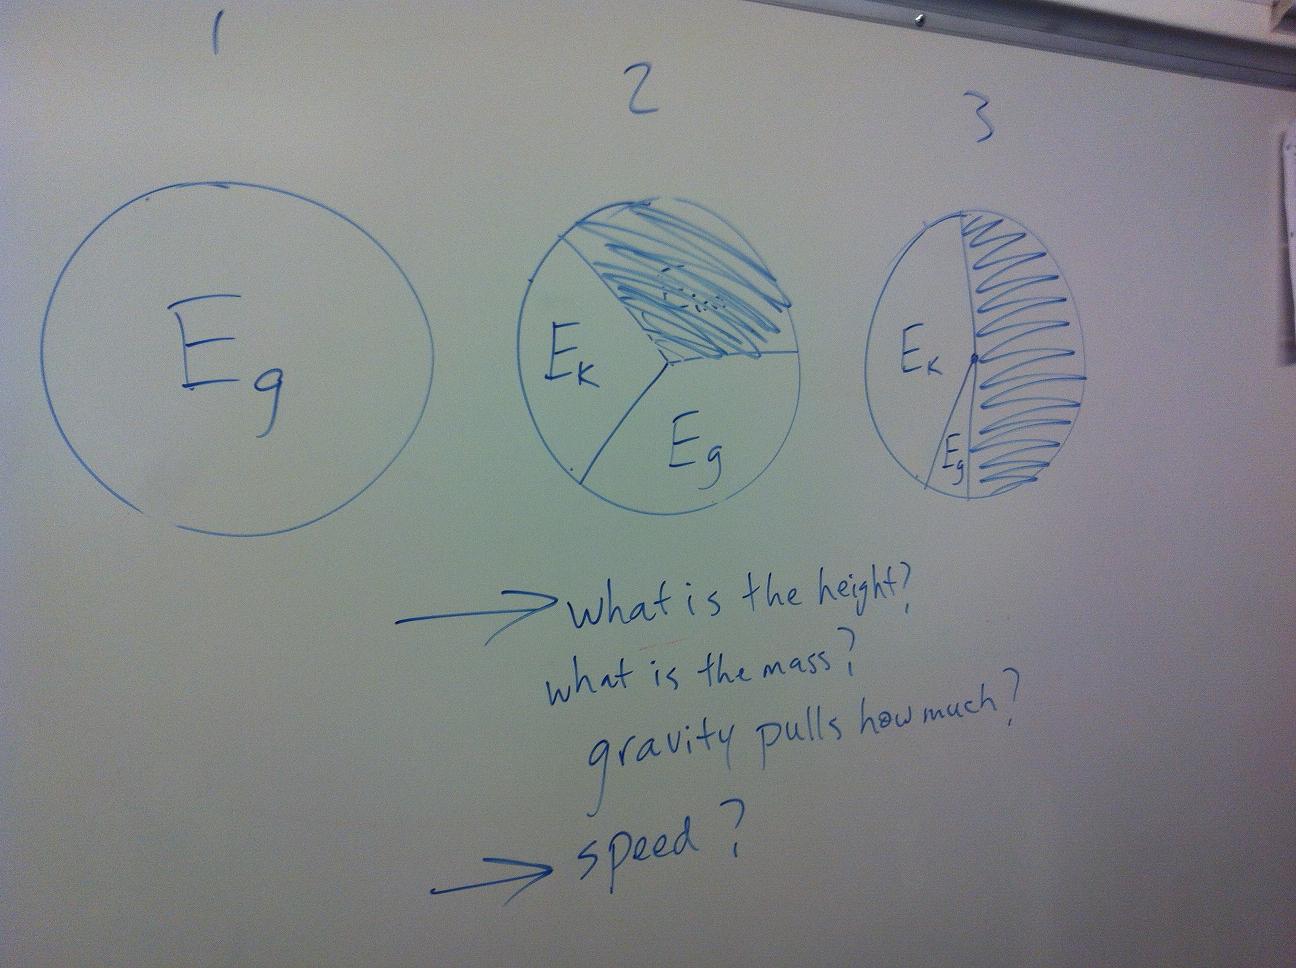 1
2
3
Eg
Ek
Eg
Ek
Eg
What is the height?
what is the mass?
gravity pulls how much?
speed?